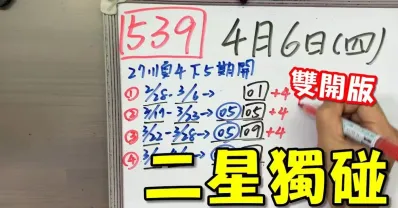 539 4月6日(四)
27順4下5期開
① 2/28-3/6→ 01 +4
雙開版
② 3/17-3/23→ 05 05 +4
③ 3/22-3/28→ 05 09 +4
④
二星獨碰